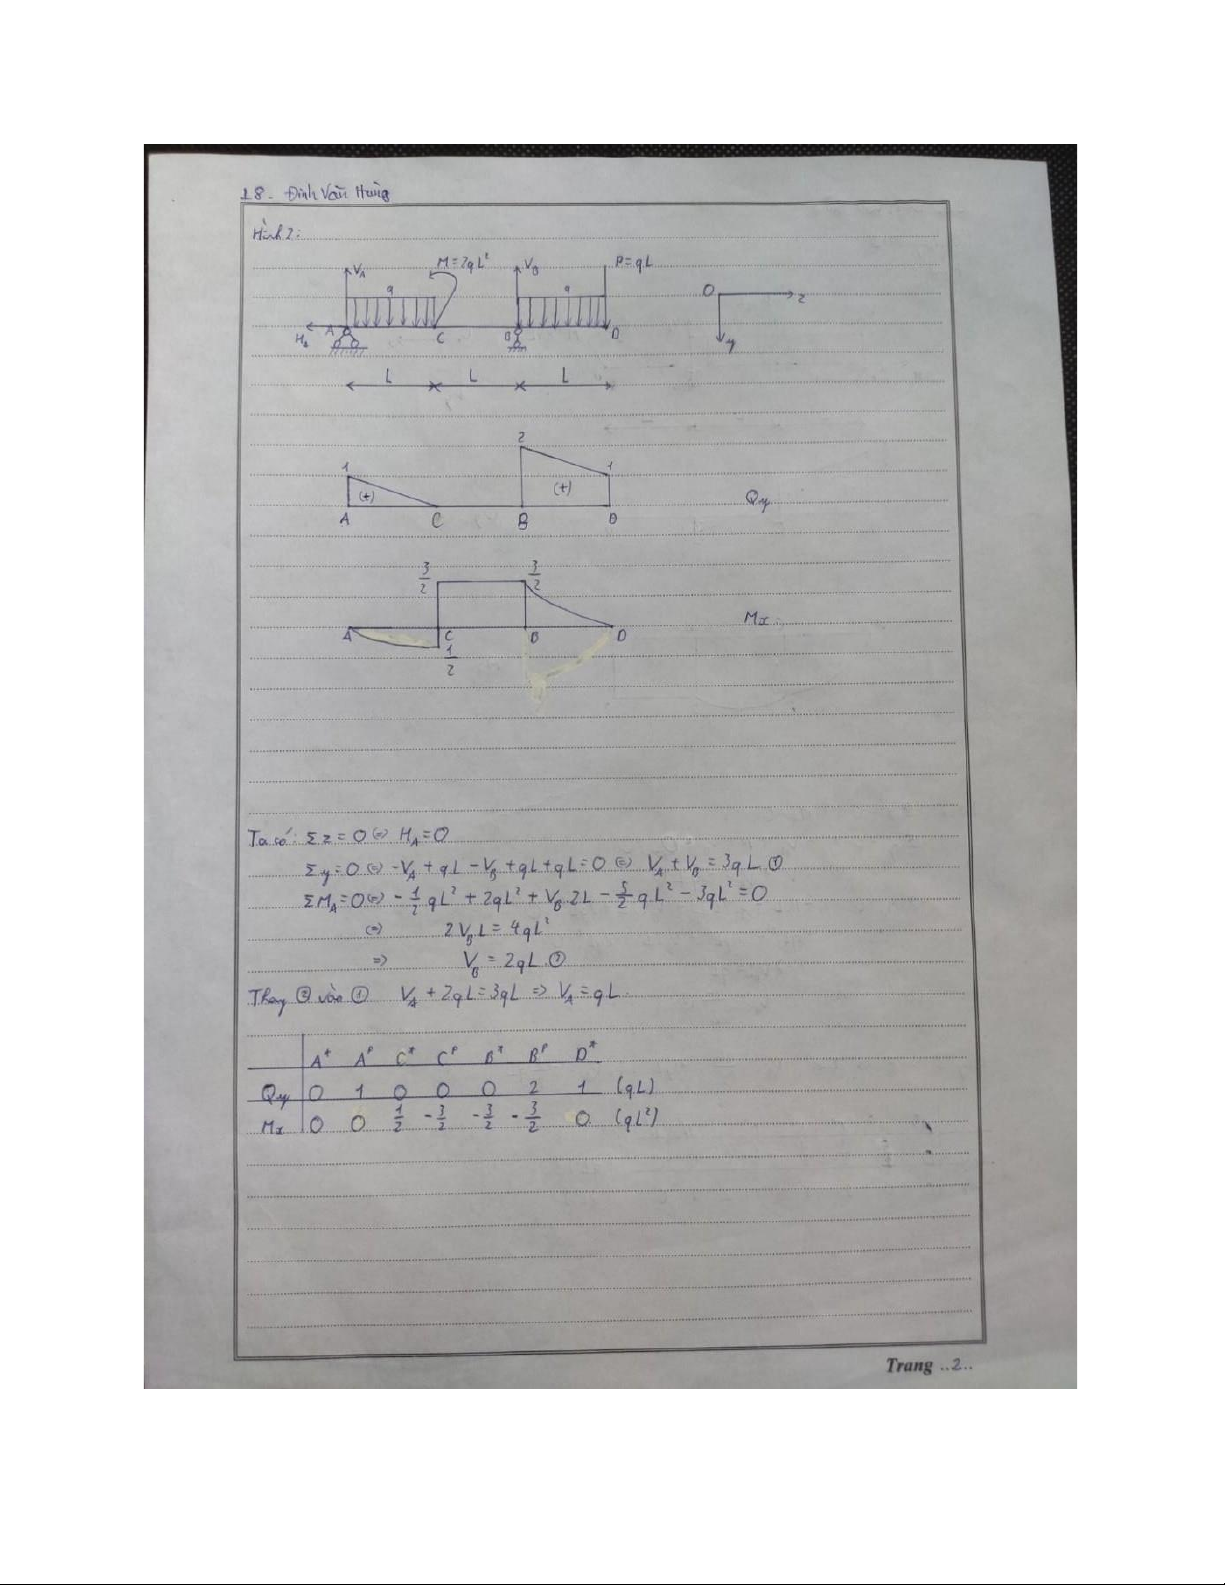 18 - Đinh Văn Hùng
Hình 2:
V_A M = 2qL² V_B P = qL
q q O z
H_A A C B D y
L L L
2
1 1
(+) (+) Qy
A C B D
3/2 3/2
Mx
A C B D
1/2
Ta có: Σz = 0 (=) H_A = 0
Σy = 0 (=) -V_A + qL - V_B + qL + qL = 0 (=) V_A + V_B = 3qL ①
ΣM_A = 0 (=) - 1/2 qL² + 2qL² + V_B.2L - 5/2 qL² - 3qL² = 0
(=) 2V_B L = 4qL²
=> V_B = 2qL ②
Thay ② vào ① V_A + 2qL = 3qL => V_A = qL
A* A^P C* C^P B* B^P D*
Qy 0 1 0 0 0 2 1 (qL)
Mx 0 0 1/2 -3/2 -3/2 -3/2 0 (qL²)
Trang ..2..